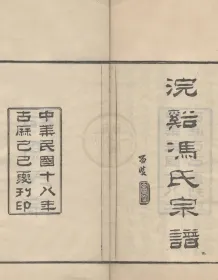 浣谿馮氏宗譜
中華民國十八年
古麻己巳夏刊印